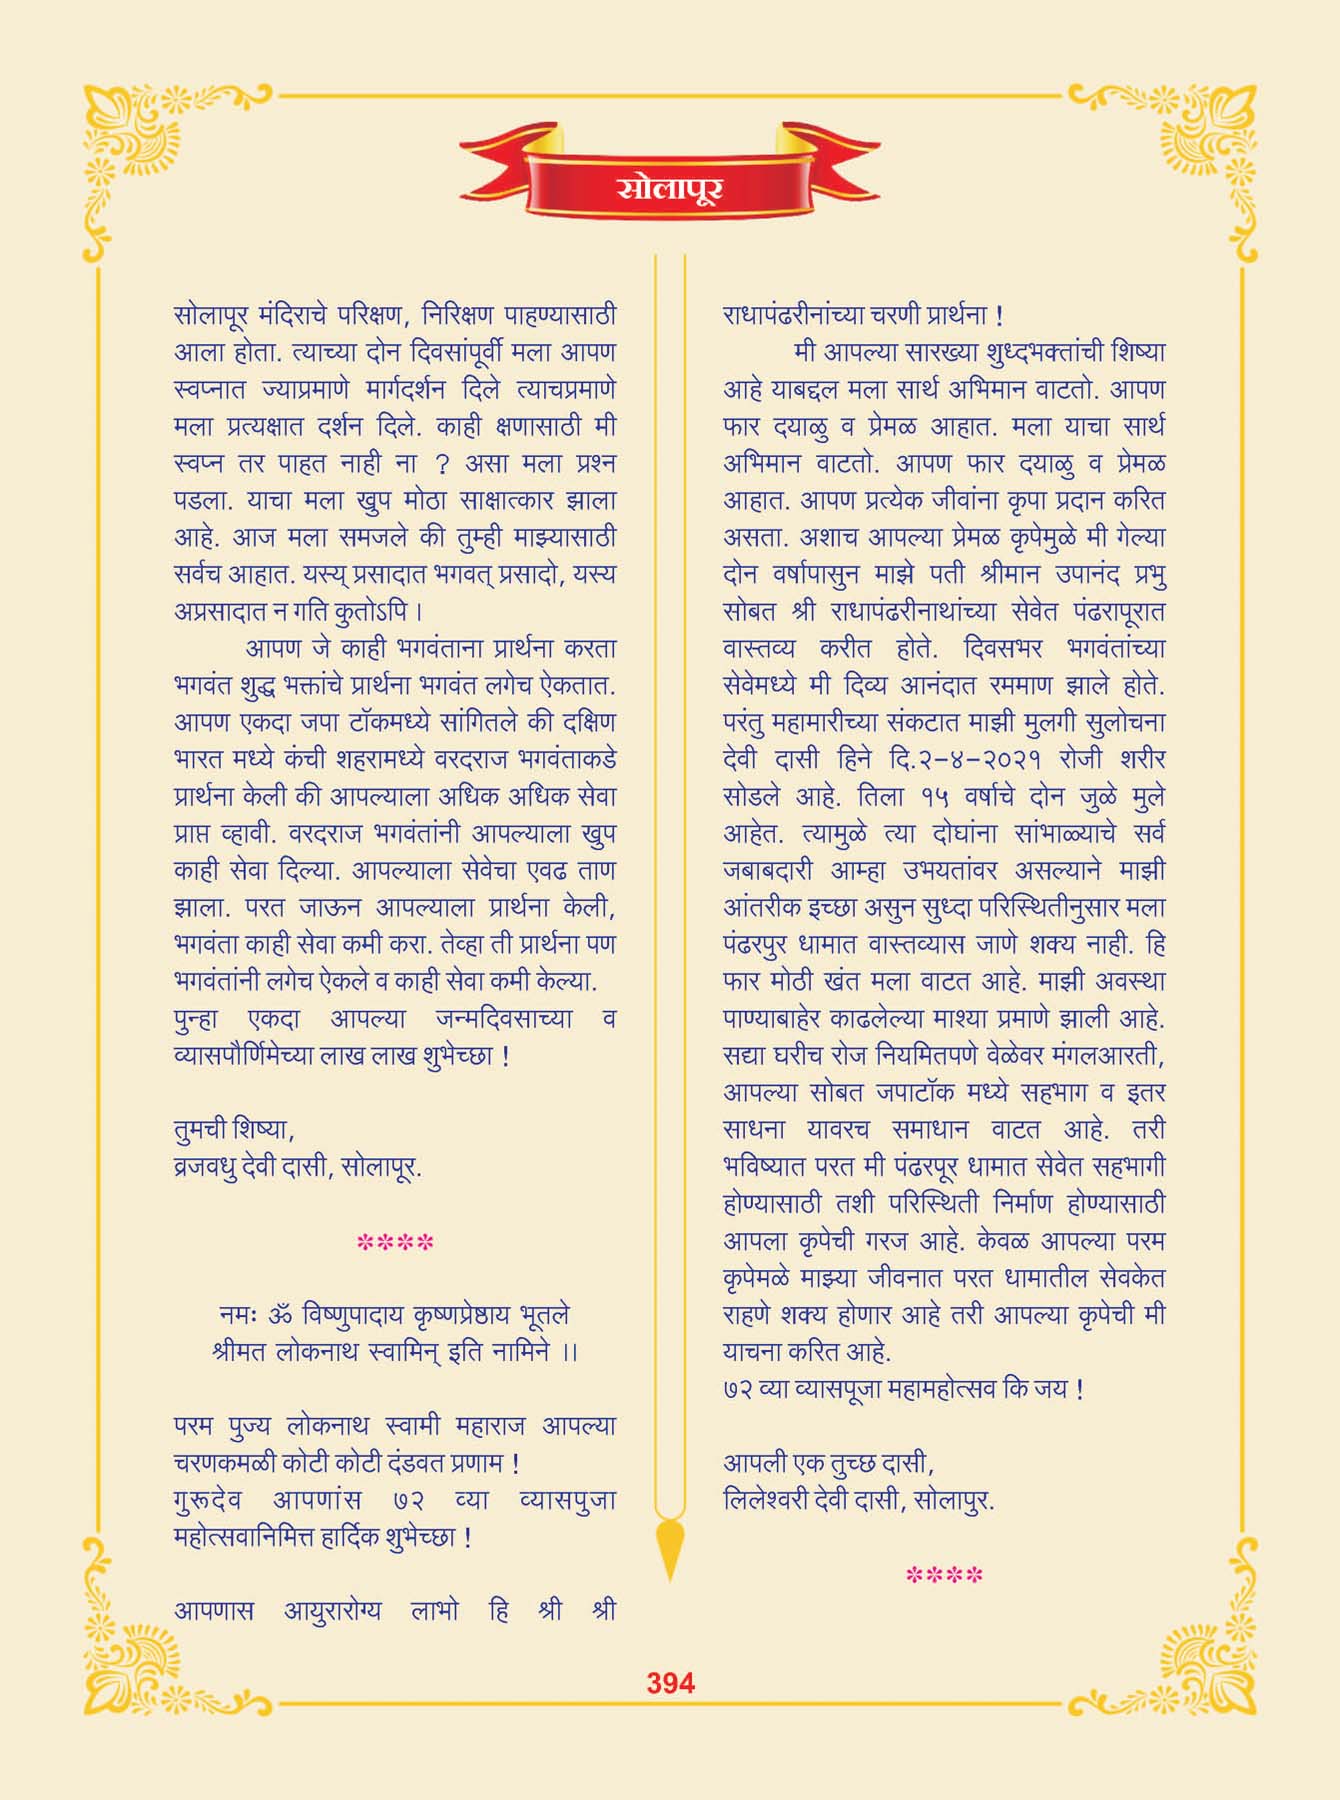 सोलापूर
सोलापूर मंदिराचे परिक्षण, निरिक्षण पाहण्यासाठी
आला होता. त्याच्या दोन दिवसांपूर्वी मला आपण
स्वप्नात ज्याप्रमाणे मार्गदर्शन दिले त्याचप्रमाणे
मला प्रत्यक्षात दर्शन दिले. काही क्षणासाठी मी
स्वप्न तर पाहत नाही ना ? असा मला प्रश्न
पडला. याचा मला खुप मोठा साक्षात्कार झाला
आहे. आज मला समजले की तुम्ही माझ्यासाठी
सर्वच आहात. यस्य् प्रसादात भगवत् प्रसादो, यस्य
अप्रसादात न गति कुतोऽपि ।
आपण जे काही भगवंताना प्रार्थना करता
भगवंत शुद्ध भक्तांचे प्रार्थना भगवंत लगेच ऐकतात.
आपण एकदा जपा टॉकमध्ये सांगितले की दक्षिण
भारत मध्ये कंची शहरामध्ये वरदराज भगवंताकडे
प्रार्थना केली की आपल्याला अधिक अधिक सेवा
प्राप्त व्हावी. वरदराज भगवंतांनी आपल्याला खुप
काही सेवा दिल्या. आपल्याला सेवेचा एवढ ताण
झाला. परत जाऊन आपल्याला प्रार्थना केली,
भगवंता काही सेवा कमी करा. तेव्हा ती प्रार्थना पण
भगवंतांनी लगेच ऐकले व काही सेवा कमी केल्या.
पुन्हा एकदा आपल्या जन्मदिवसाच्या व
व्यासपौर्णिमेच्या लाख लाख शुभेच्छा !
तुमची शिष्या,
व्रजवधु देवी दासी, सोलापूर.
****
नमः ॐ विष्णुपादाय कृष्णप्रेष्ठाय भूतले
श्रीमत लोकनाथ स्वामिन् इति नामिने ।।
परम पुज्य लोकनाथ स्वामी महाराज आपल्या
चरणकमळी कोटी कोटी दंडवत प्रणाम !
गुरूदेव आपणांस ७२ व्या व्यासपुजा
महोत्सवानिमित्त हार्दिक शुभेच्छा !
आपणास आयुरारोग्य लाभो हि श्री श्री
राधापंढरीनांच्या चरणी प्रार्थना !
मी आपल्या सारख्या शुध्दभक्तांची शिष्या
आहे याबद्दल मला सार्थ अभिमान वाटतो. आपण
फार दयाळु व प्रेमळ आहात. मला याचा सार्थ
अभिमान वाटतो. आपण फार दयाळु व प्रेमळ
आहात. आपण प्रत्येक जीवांना कृपा प्रदान करित
असता. अशाच आपल्या प्रेमळ कृपेमुळे मी गेल्या
दोन वर्षापासुन माझे पती श्रीमान उपानंद प्रभु
सोबत श्री राधापंढरीनाथांच्या सेवेत पंढरापूरात
वास्तव्य करीत होते. दिवसभर भगवंतांच्या
सेवेमध्ये मी दिव्य आनंदात रममाण झाले होते.
परंतु महामारीच्या संकटात माझी मुलगी सुलोचना
देवी दासी हिने दि.२-४-२०२१ रोजी शरीर
सोडले आहे. तिला १५ वर्षाचे दोन जुळे मुले
आहेत. त्यामुळे त्या दोघांना सांभाळ्याचे सर्व
जबाबदारी आम्हा उभयतांवर असल्याने माझी
आंतरीक इच्छा असुन सुध्दा परिस्थितीनुसार मला
पंढरपुर धामात वास्तव्यास जाणे शक्य नाही. हि
फार मोठी खंत मला वाटत आहे. माझी अवस्था
पाण्याबाहेर काढलेल्या माश्या प्रमाणे झाली आहे.
सद्या घरीच रोज नियमितपणे वेळेवर मंगलआरती,
आपल्या सोबत जपाटॉक मध्ये सहभाग व इतर
साधना यावरच समाधान वाटत आहे. तरी
भविष्यात परत मी पंढरपूर धामात सेवेत सहभागी
होण्यासाठी तशी परिस्थिती निर्माण होण्यासाठी
आपला कृपेची गरज आहे. केवळ आपल्या परम
कृपेमळे माझ्या जीवनात परत धामातील सेवकेत
राहणे शक्य होणार आहे तरी आपल्या कृपेची मी
याचना करित आहे.
७२ व्या व्यासपूजा महामहोत्सव कि जय !
आपली एक तुच्छ दासी,
लिलेश्वरी देवी दासी, सोलापुर.
****
394